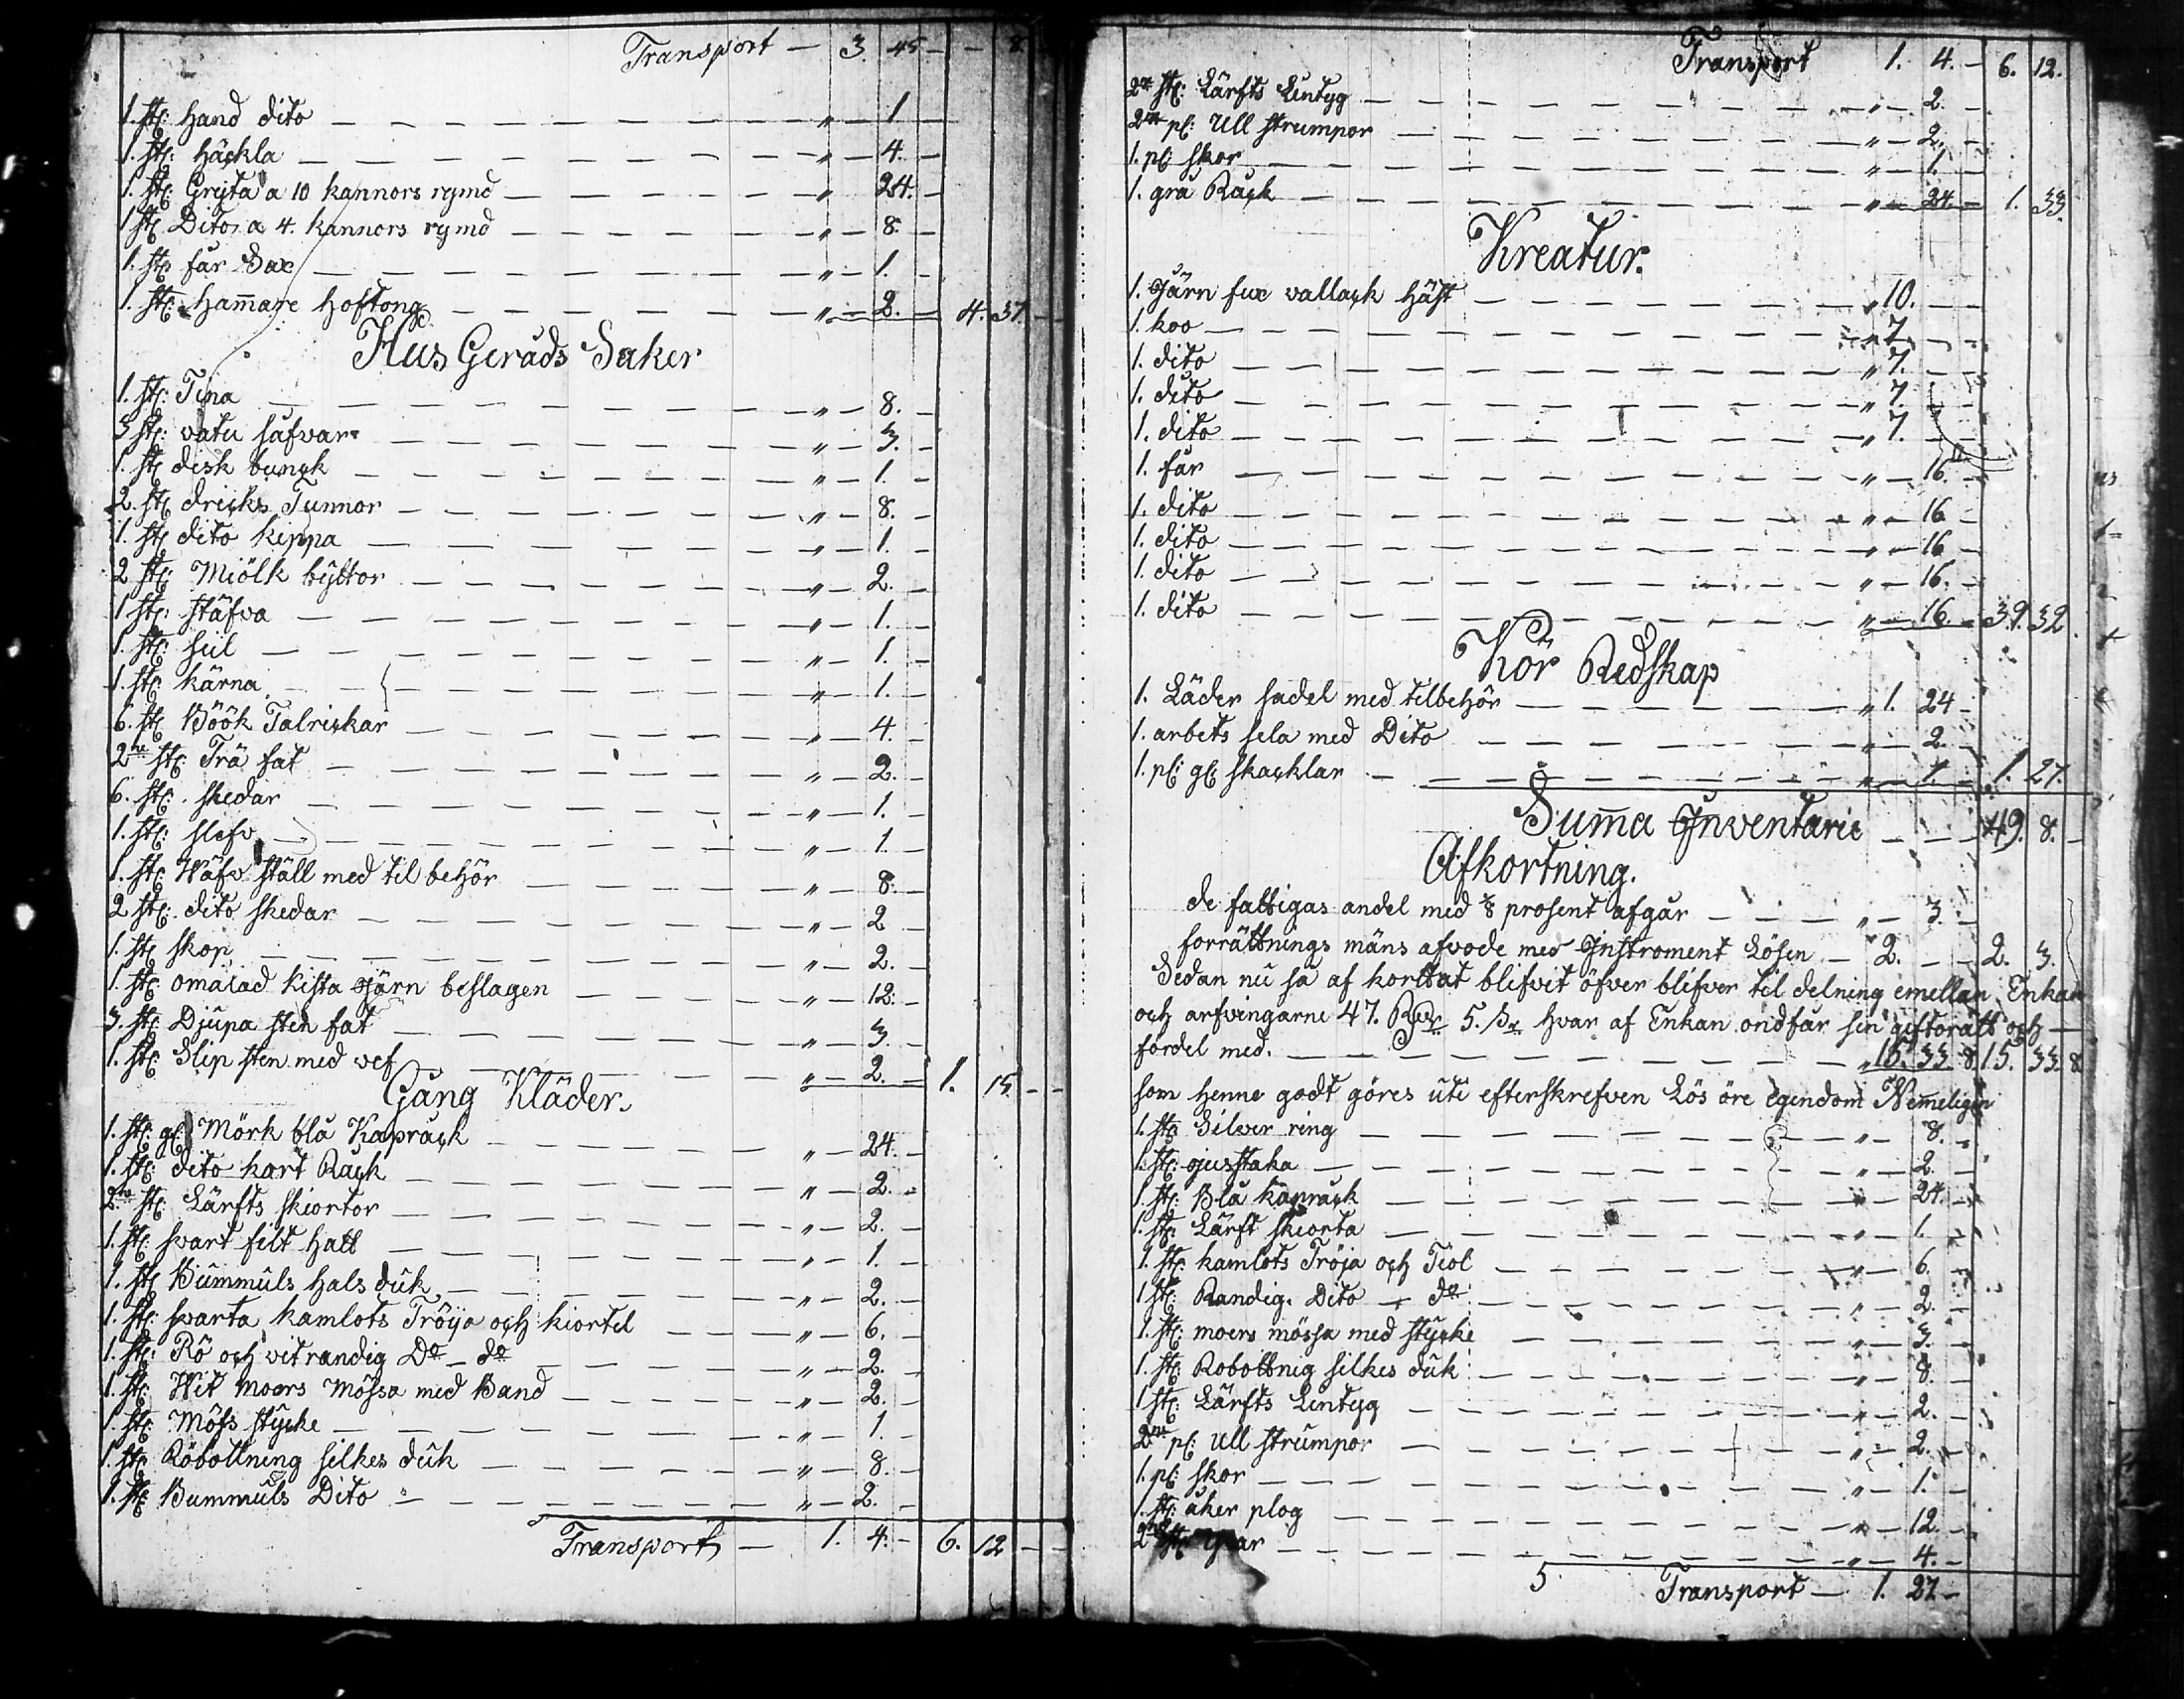 Transport — 3. 45 — — 8.
1. st: hand dito — " — 1 —
1. st: häckla — " — 4. —
1. st: Gryta a 10 kannors rymd — " 24. —
1 st: Dito a 4. kannors rymd — " — 8. —
1. st: får Sax — " — 1. —
1. st: ham̄are hoftong — " — 2. — 4. 37. —
Hus Geråds Saker
1. st: Tina — " — 8. —
3 st: vatu såfvar — " — 3. —
1. st: disk bunck — " — 1. —
2. st: dricks Tunnor — " — 8. —
1. st: dito kippa — " — 1. —
2 st: Miölk byttor — " — 2. —
1 st: stäfva — " — 1. —
1. st: sil — " — 1. —
1. st: kärna — " — 1. —
6. st: Böök Talrickar — " — 4. —
2ne st: Trä fat — " — 2. —
6. st: skedar — " — 1. —
1. st: slefv — " — 1. —
1. st: Wäfv ställ med til behör — " — 8. —
2 st: dito skedar — " — 2 —
1. st: skop — " — 2. —
1. st: omålad kista järn beslagen — " — 12. —
3. st: Djupa sten fat — " — 3. —
1. st: Slip sten med vef — " — 2. — 1. 15. —
Gång Kläder.
1. st: gl: Mörk blå Kapråck — " — 24. —
1. st: dito kort Råck — " — 2. —
2ne st: Lärfts skiortor — " — 2. —
1. st: svart filt hatt — " — 1. —
1. st: Bummuls hals duk — " — 2. —
1. st: svarta kamlots Tröya och kiortel — " — 6. —
1. st: Rö och vit randig Do — do — " — 2. —
1. st: Hvit moers mössa med Band — " — 2. —
1. st: Möss stycke — " — 1. —
1. st: Röbottning silkes duk — " — 8. —
1. st: Bummuls Dito — " — 2. —
Transport — 1. 4. — 6. 12 —
Transport 1. 4. — 6. 12.
2ne st: Lärfts Lintyg — " — 2. —
2ne pl: Ull strumpor — " — 2. —
1. pl: skor — " — 1. —
1. grå Råck — " — 24 — 1. 33.
Kreatur.
1. Järn fux vallack häst — " 10. —
1. koo — " 7. —
1. dito — " 7. —
1. dito — " 7. —
1. dito — " 7. —
1. får — " — 16. —
1. dito — " — 16 —
1. dito — " — 16 —
1. dito — " — 16. —
1. dito — " — 16. — 39. 32.
Kör Redskap
1. Läder sadel med tilbehör — " 1. 24 —
1. arbets sela med Dito — " — 2. —
1. pl: gl: skacklar — " — 1. — 1. 27.
Sum̄a Inventarie — 49. 8. —
Afkortning.
de fattigas andel med ⅛ prosent afgår — " — 3. —
forrättnings mäns afvode med Instroment Lösen — 2. — 2. 3.
Sedan nu så af kortat blifvit öfver blifver til delning emellan Enkan
och arfvingarne 47. Rdr 5. sk hvar af Enkan ondfår sin giftorätt och —
fördel med. — " 15. 33. 8. 15. 33. 8
som henne godt göres uti efterskrefven Lös öre Egendom Nem̄eligen
1. st: Silver ring — " — 8. —
1. st: ljusstaka — " — 2. —
1. st: Blå kapråck — " — 24. —
1. st: Lärft skiorta — " — 1. —
1. st: kamlots Tröja och Tiol — " — 6. —
1 st: Randig. Dito — do — " — 2 —
1. st: moers mössa med stycke — " — 3. —
1. st: Robottnig silkes duk — " — 8. —
1 st: Lärfts Lintyg — " — 2. —
2ne pl: Ull strumpor — " — 2. —
1. pl: skor — " — 1. —
1. st: åker plog — " — 12. —
2ne st: — " — 4. —
5 Transport — 1. 27 —